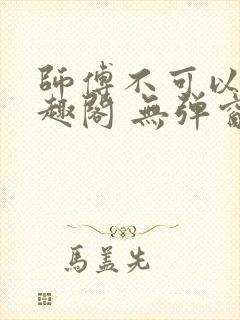 師傅不可以
趣閣 無弹窗
馬盖先